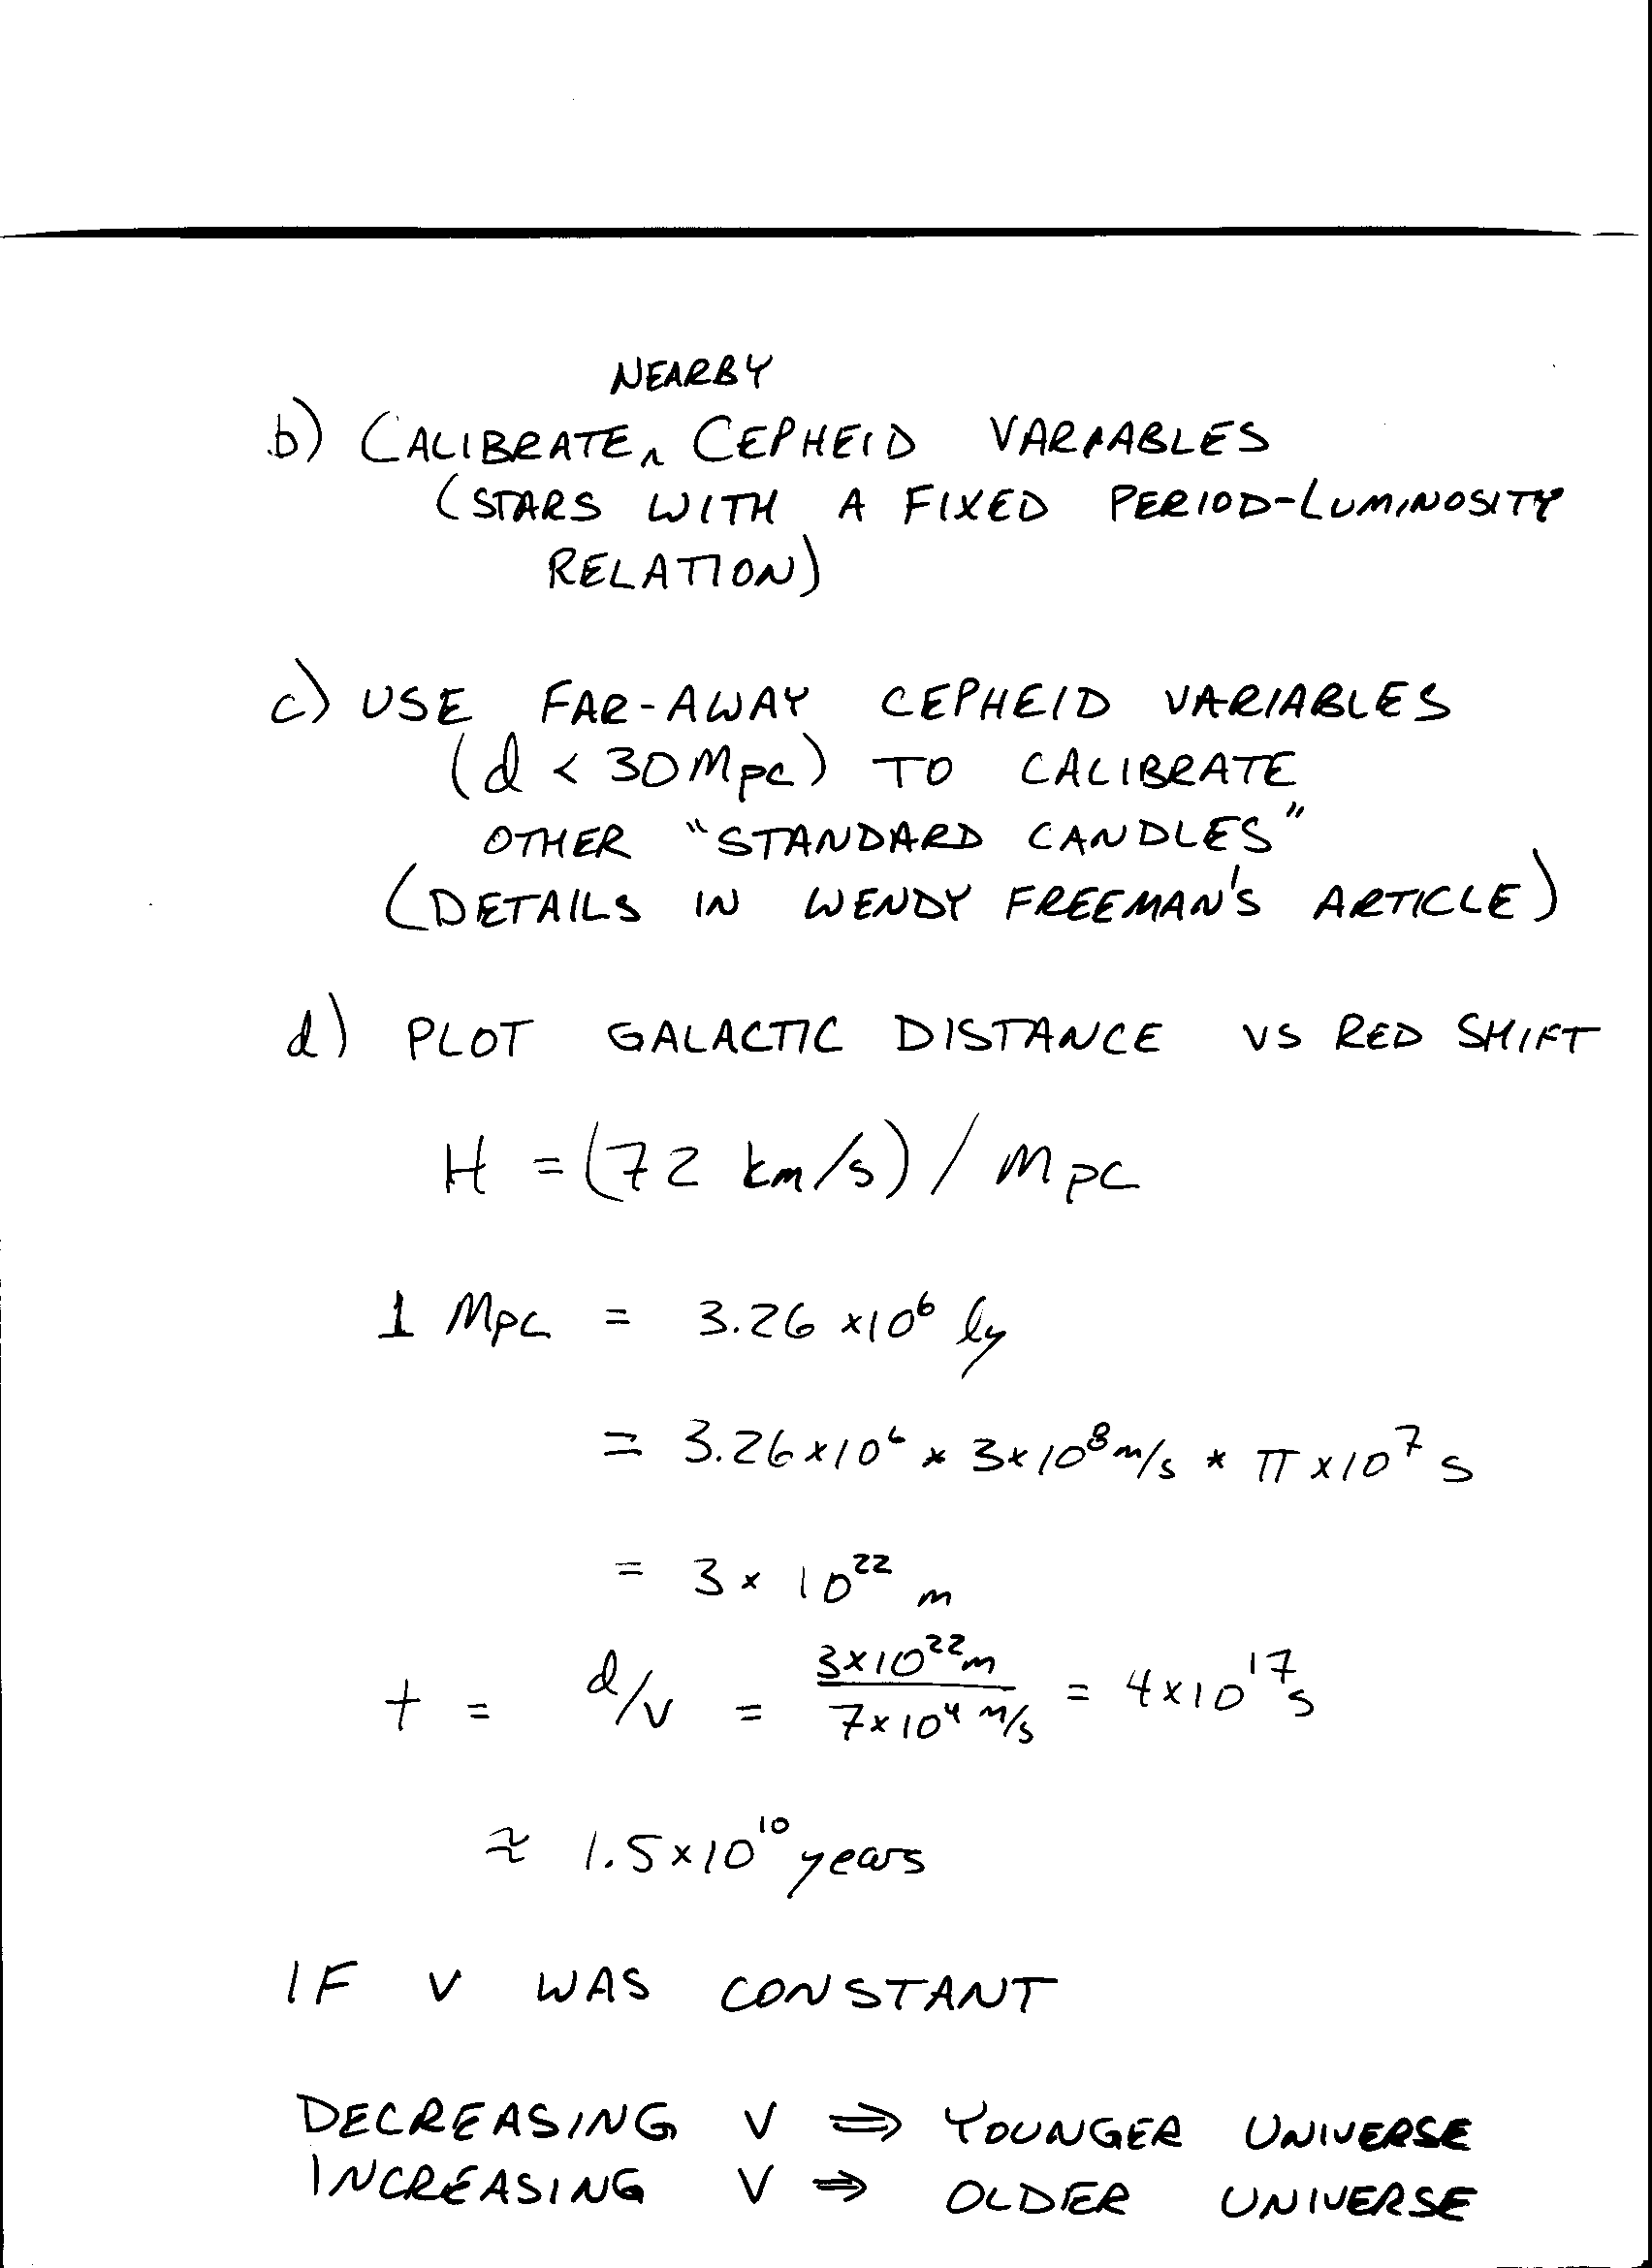 NEARBY
b) CALIBRATE^ CEPHEID VARIABLES
(STARS WITH A FIXED PERIOD-LUMINOSITY
RELATION)
c) USE FAR-AWAY CEPHEID VARIABLES
(d < 30 Mpc) TO CALIBRATE
OTHER "STANDARD CANDLES"
(DETAILS IN WENDY FREEMAN'S ARTICLE)
d) PLOT GALACTIC DISTANCE VS RED SHIFT
H = (72 km/s) / Mpc
1 Mpc = 3.26 ×10⁶ ly
= 3.26×10⁶ × 3×10⁸ m/s * π×10⁷ s
= 3 × 10²² m
t = d/v = 3×10²² m / 7×10⁴ m/s = 4×10¹⁷ s
≈ 1.5×10¹⁰ years
IF V WAS CONSTANT
DECREASING V ⇒ YOUNGER UNIVERSE
INCREASING V ⇒ OLDER UNIVERSE